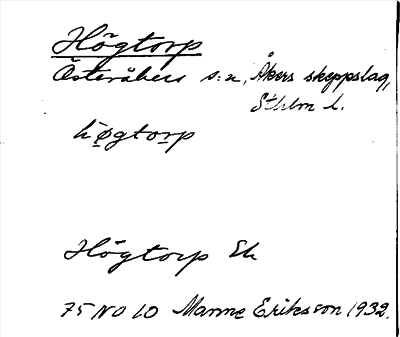 Högtorp
Österåkers s:n, Åkers skeppslag,
Sthlm l.
högtorp
Högtorp Ek
75 NO 10 Manne Eriksson 1932.